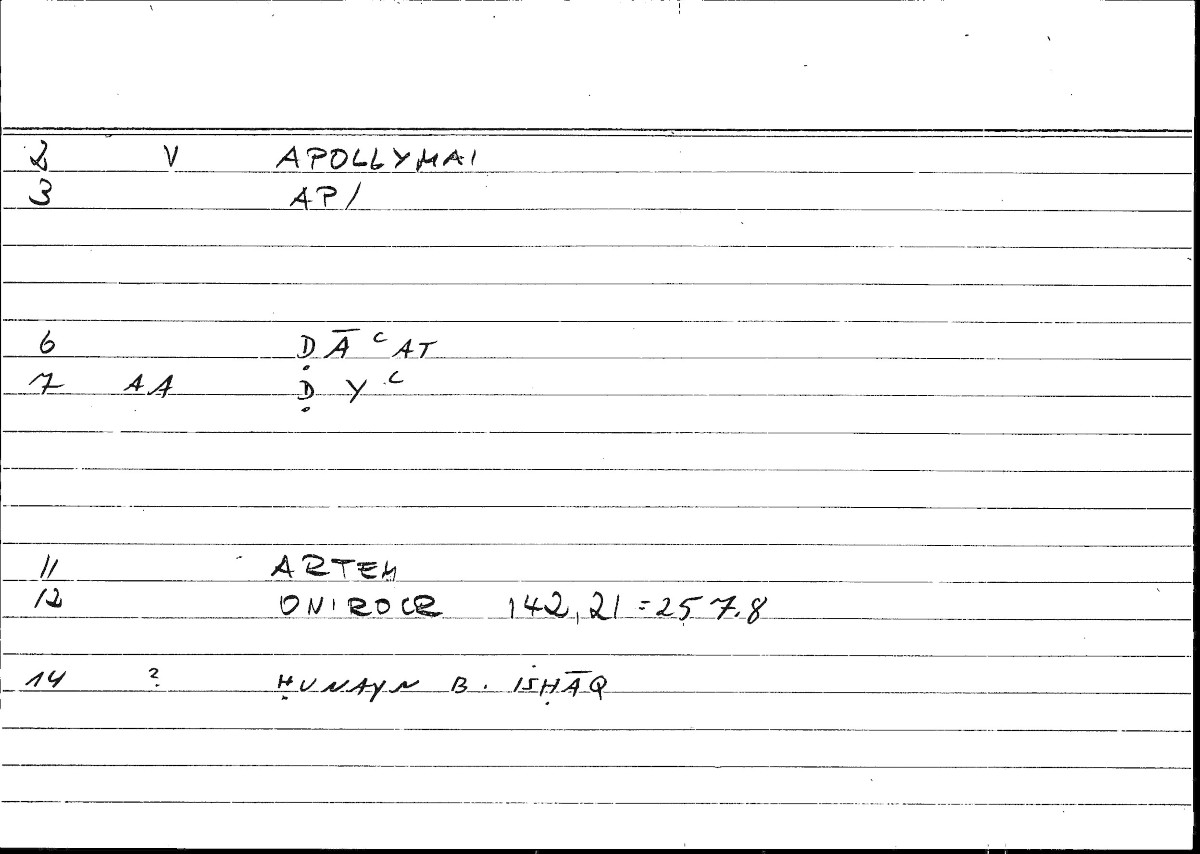 2 V APOLLYMAI
3 AP/
6 ḌĀ ᶜ AT
7 AA Ḍ Y ᶜ
11 ARTEM
12 ONIROCR 142,21 = 257.8
14 ? ḤUNAYN B. ISḤĀQ